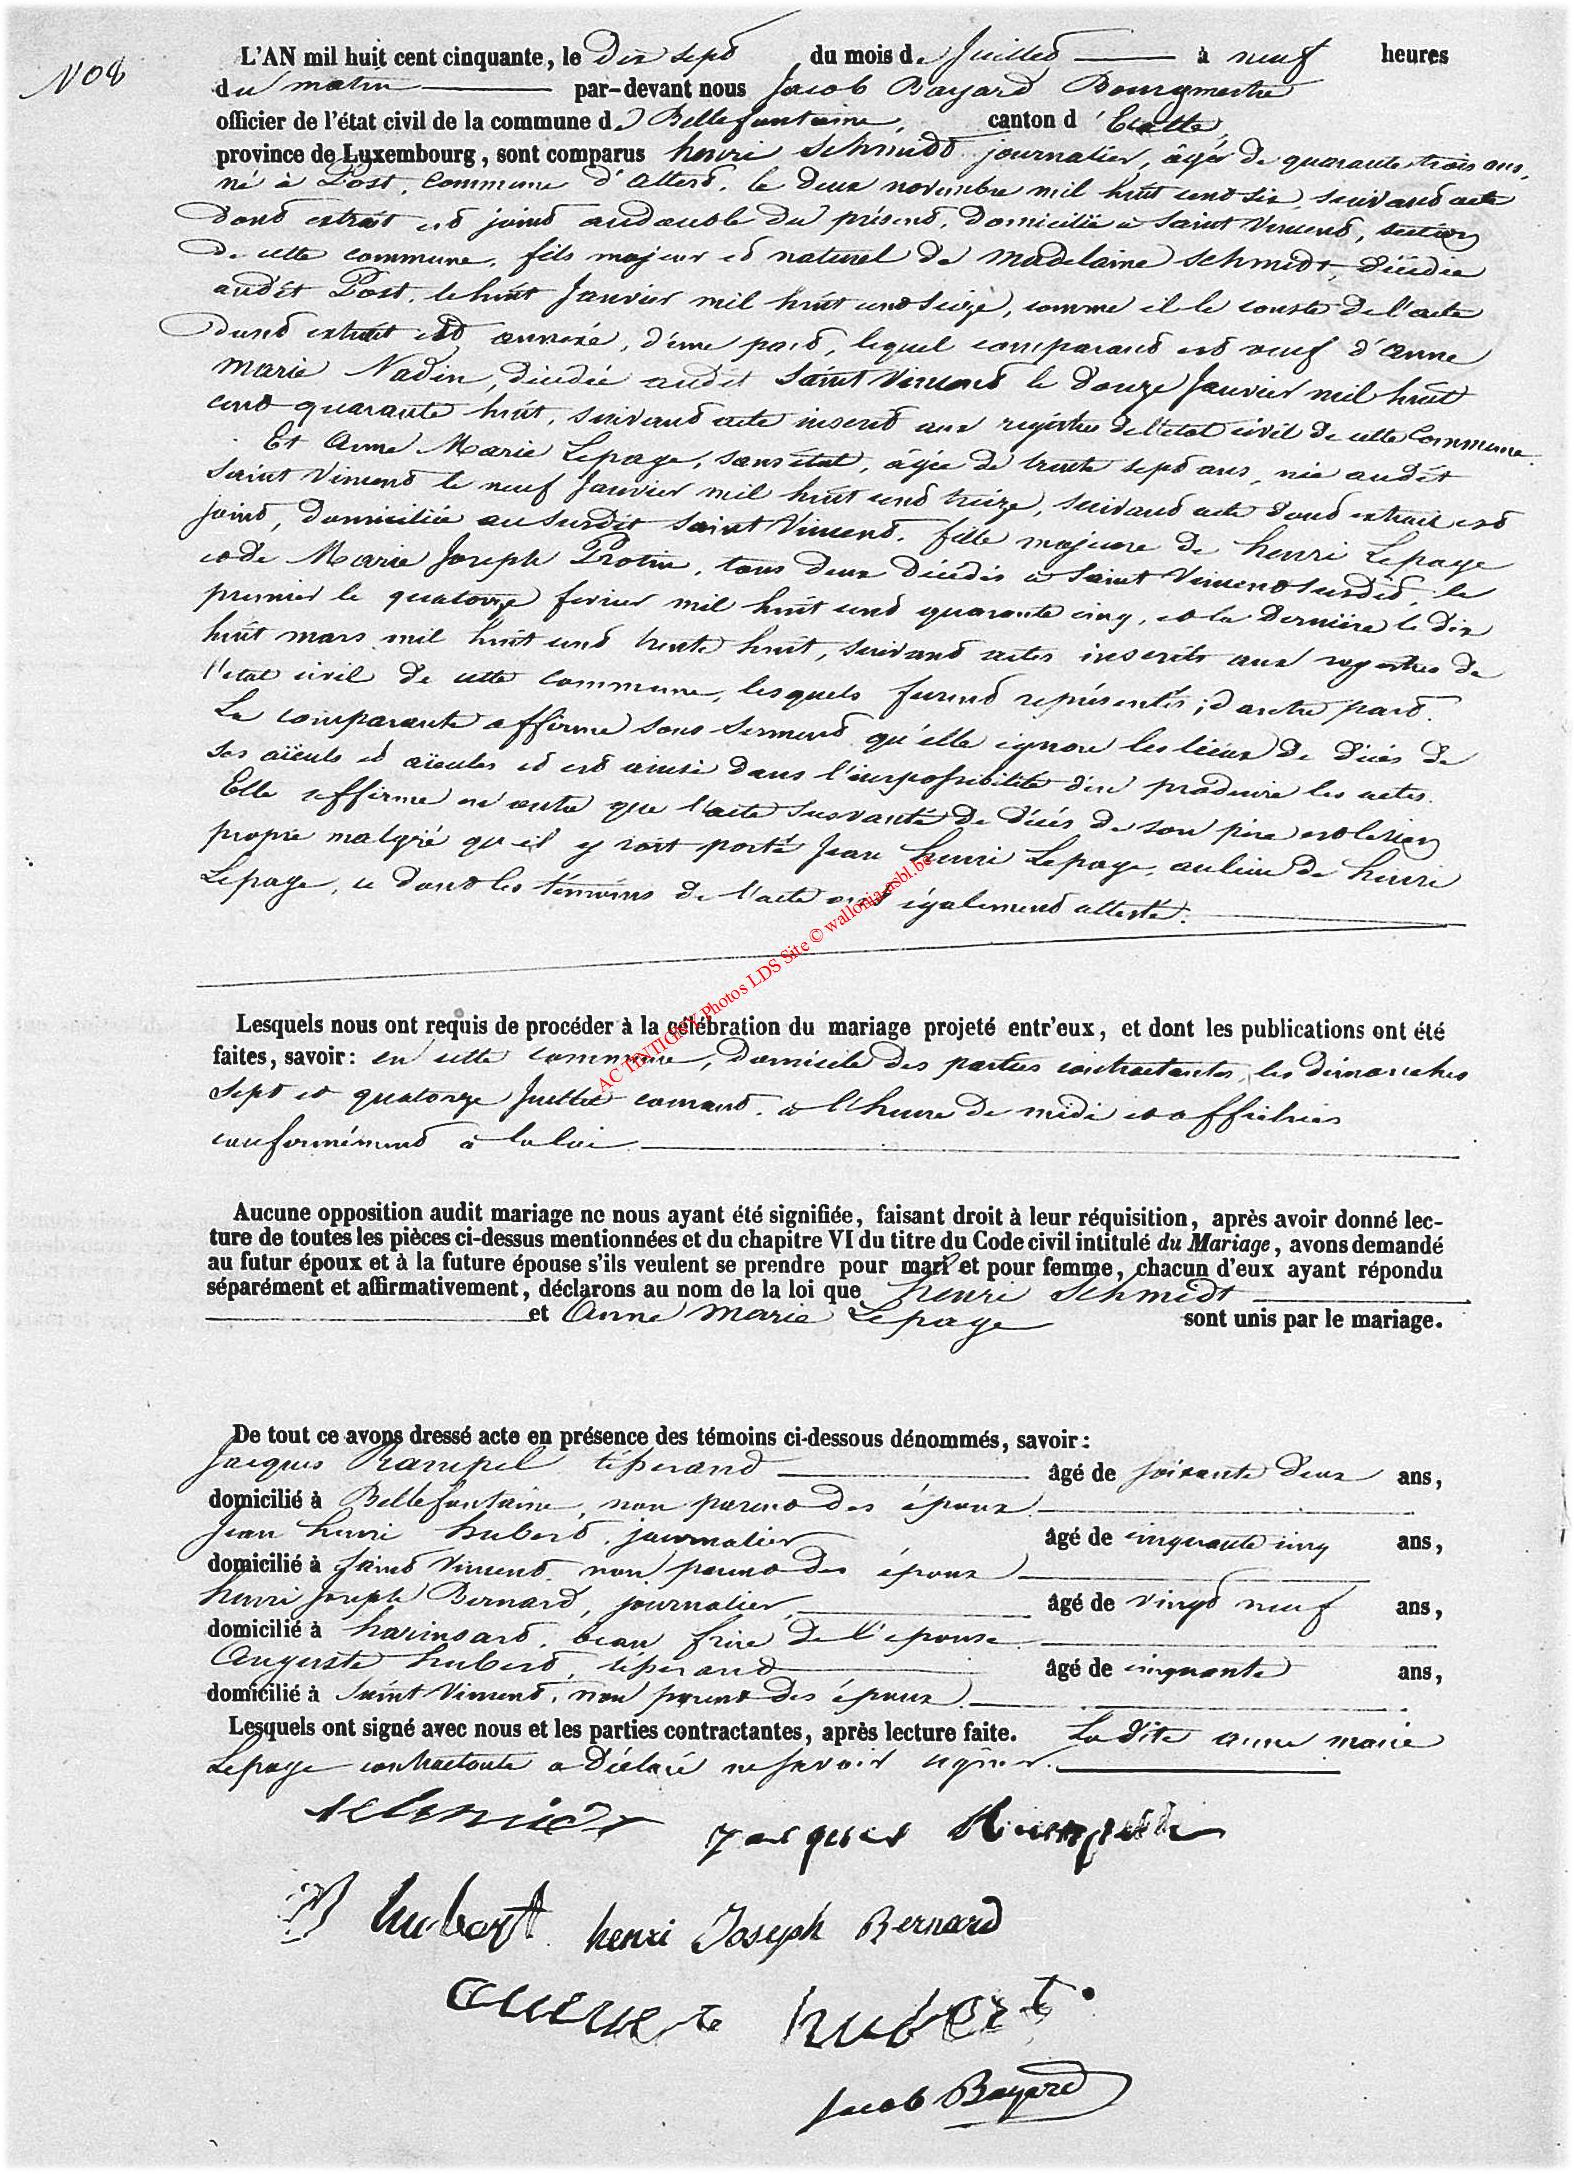 N° 8
L'AN mil huit cent cinquante, le Dix sept du mois de Juillet à neuf heures
du matin par-devant nous Jacob Bayard Bourgmestre
officier de l'état civil de la commune de Bellefontaine, canton d'Etalle,
province de Luxembourg, sont comparus henri Schmidt journalier, âgé de quarante trois ans,
né à Post, Commune d'Attert, le deux novembre mil huit cent six, suivant acte
dont extrait est joint au double du présent, domicilié à Saint Vincent, section
de cette commune, fils majeur et naturel de Madelaine Schmidt, décédée
audit Post, le huit Janvier mil huit cent seize, comme il le conste de l'acte
dont extrait est annexé, d'une part, lequel comparant est veuf d'anne
marie Nadin, décédée audit Saint Vincent le douze Janvier mil huit
cent quarante huit, suivant acte inscrit aux registres de l'état civil de cette Commune.
Et Anne Marie Lepage, sans état, âgée de trente sept ans, née audit
Saint Vincent le neuf Janvier mil huit cent treize, suivant acte dont extrait est
joint, domiciliée au susdit Saint Vincent, fille majeure de henri Lepage
et de Marie Joseph Protin, tous deux décédés à Saint Vincent susdit, le
premier le quatorze fevrier mil huit cent quarante cinq, et la dernière le dix
huit mars mil huit cent trente huit, suivant actes inscrits aux registres de
l'état civil de cette commune, lesquels furent représentés; d'autre part.
La comparante affirme sous serment qu'elle ignore les lieux de décès de
ses aïeuls et aïeules et est ainsi dans l'impossibilité d'en produire les actes.
Elle affirme en outre que l'acte susvanté de décès de son père est le sien
propre malgré qu'il y soit porté Jean henri Lepage, au lieu de henri
Lepage, ce dont les témoins de l'acte ont également attesté.
AC TINTIGNY Photos LDS Site © wallonia-asbl.be
Lesquels nous ont requis de procéder à la célébration du mariage projeté entr'eux, et dont les publications ont été
faites, savoir: en cette commune, domicile des parties contractantes, les dimanches
sept et quatorze Juillet courant, à l'heure de midi et affichées
conformément à la loi
Aucune opposition audit mariage ne nous ayant été signifiée, faisant droit à leur réquisition, après avoir donné lec-
ture de toutes les pièces ci-dessus mentionnées et du chapitre VI du titre du Code civil intitulé du Mariage, avons demandé
au futur époux et à la future épouse s'ils veulent se prendre pour mari et pour femme, chacun d'eux ayant répondu
séparément et affirmativement, déclarons au nom de la loi que henri Schmidt
et Anne Marie Lepage sont unis par le mariage.
De tout ce avons dressé acte en présence des témoins ci-dessous dénommés, savoir:
Jacques Rampel tisserand âgé de soixante deux ans,
domicilié à Bellefontaine, non parent des époux
Jean henri hubert, journalier âgé de cinquante cinq ans,
domicilié à Saint Vincent, non parent des époux
henri Joseph Bernard, journalier, âgé de vingt neuf ans,
domicilié à harinsart, beau frère de l'épouse
Auguste hubert, tisserand âgé de cinquante ans,
domicilié à Saint Vincent, non parent des époux
Lesquels ont signé avec nous et les parties contractantes, après lecture faite. La dite anne marie
Lepage contractante a déclaré ne savoir signer.
schmidt jacques
hubert henri Joseph Bernard
hubert
Jacob Bayard